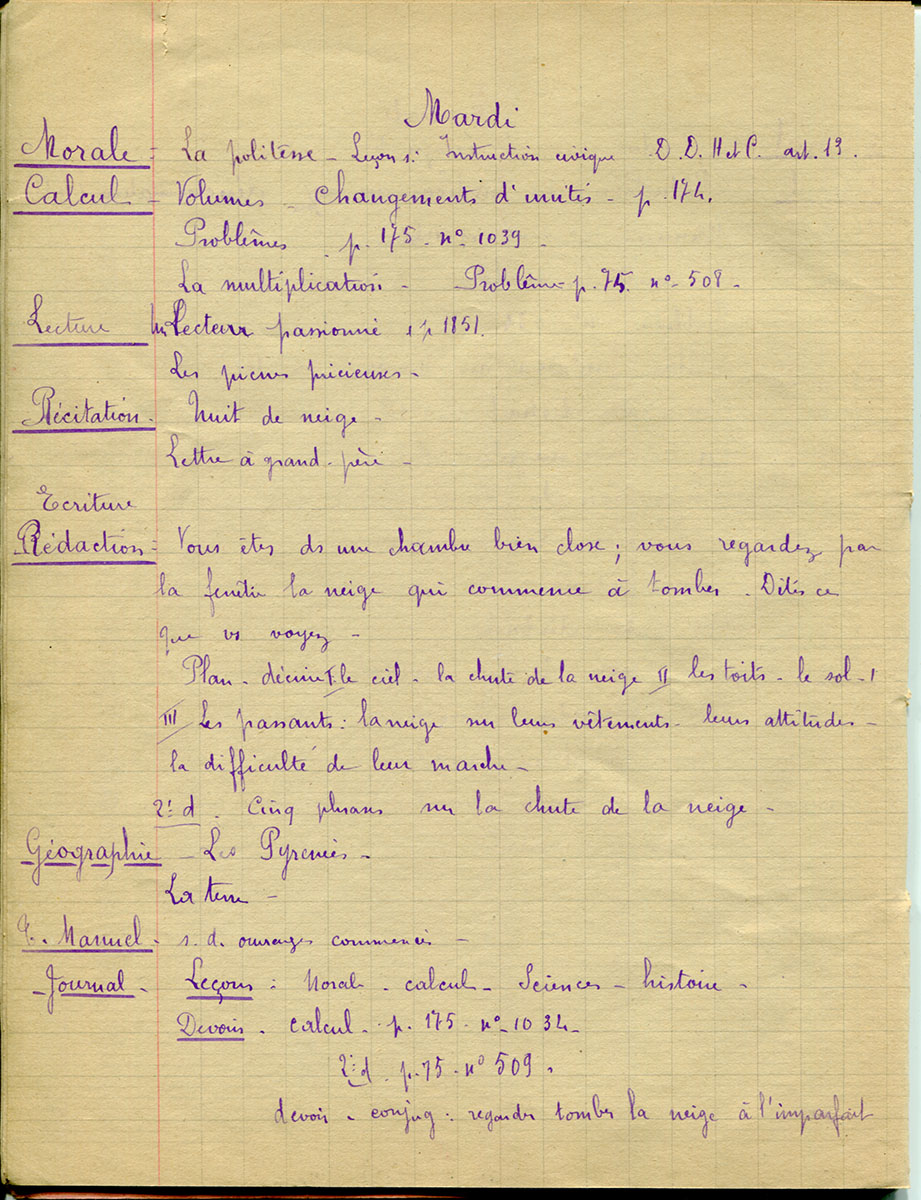 Mardi
Morale = La politesse - Leçon s: Instruction civique D.D.H et C. art. 13.
Calcul - Volumes - Changements d'unités - p. 174.
Problêmes p. 175 - n° 1039 -
La multiplication - Problême p. 75. n° 508 -
Lecture Un Lecteur passionné 1851.
Les pierres précieuses -
Récitation - Nuit de neige -
Lettre à grand-père -
Ecriture
Rédaction = Vous êtes ds une chambre bien close ; vous regardez par
la fenêtre la neige qui commence à tomber. Dites ce
que vs voyez -
Plan - décrire I le ciel - la chute de la neige II les toits - le sol -
III Les passants : la neige sur leurs vêtements - leurs attitudes -
la difficulté de leur marche -
2e d. Cinq phrases sur la chute de la neige -
Géographie - Les Pyrénées -
La terre -
T. Manuel - s. d. ouvrages commencés -
- Journal - Leçons : Morale - calcul - Sciences - histoire -
Devoirs - calcul - p. 175 - n° 1034 -
2e d. p. 75 - n° 509.
devoir - conjug : regarder tomber la neige à l'imparfait